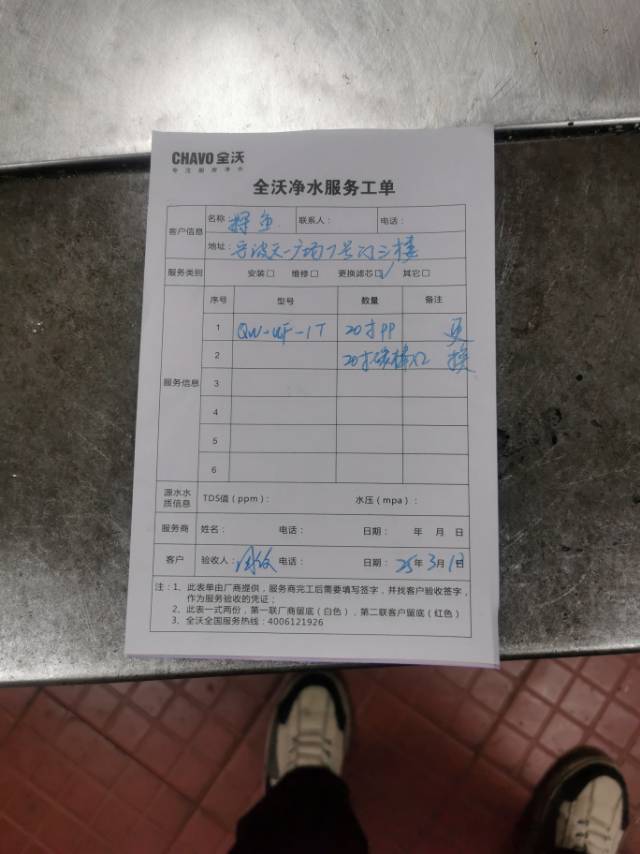 CHAVO 全沃
专注厨房净水
全沃净水服务工单
客户信息 名称: 探鱼 联系人: 电话:
地址: 宁波天一广场7号门三楼
服务类别 安装□ 维修□ 更换滤芯□√ 其它□
服务信息 序号 型号 数量 备注
1 QW-UF-1T 20寸PP 更
2 20寸碳棒X2 换
3
4
5
6
源水水质信息 TDS值(ppm): 水压(mpa):
服务商 姓名: 电话: 日期: 年 月 日
客户 验收人: 电话: 日期: 25年3月1日
注:1、此表单由厂商提供,服务商完工后需要填写签字,并找客户验收签字,
作为服务验收的凭证;
2、此表一式两份,第一联厂商留底(白色),第二联客户留底(红色)
3、全沃全国服务热线:4006121926